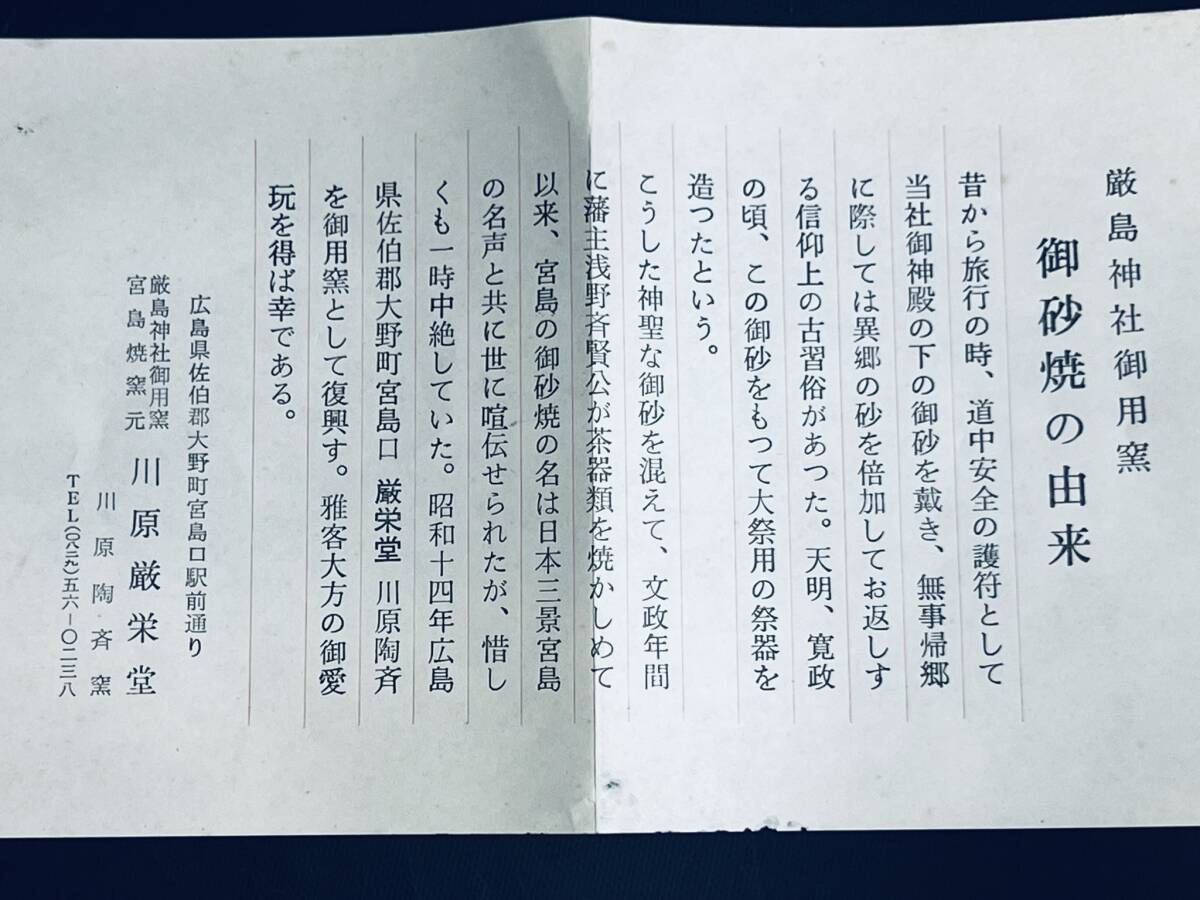 厳島神社御用窯
御砂焼の由来
昔から旅行の時、道中安全の護符として
当社御神殿の下の御砂を戴き、無事帰郷
に際しては異郷の砂を倍加してお返しす
る信仰上の古習俗があつた。天明、寛政
の頃、この御砂をもつて大祭用の祭器を
造つたという。
こうした神聖な御砂を混えて、文政年間
に藩主浅野斉賢公が茶器類を焼かしめて
以来、宮島の御砂焼の名は日本三景宮島
の名声と共に世に喧伝せられたが、惜し
くも一時中絶していた。昭和十四年広島
県佐伯郡大野町宮島口 厳栄堂 川原陶斉
を御用窯として復興す。雅客大方の御愛
玩を得ば幸である。
広島県佐伯郡大野町宮島口駅前通り
厳島神社御用窯
宮島焼窯元
川原厳栄堂
川原陶斉窯
TEL(〇八二九)五六ー〇二三八